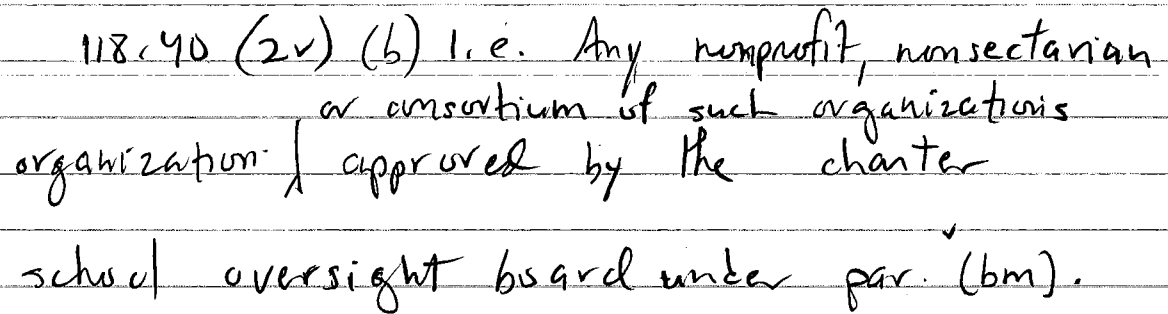 118.40 (2v) (b) 1.e. Any nonprofit, nonsectarian
or consortium of such organizations
organization approved by the charter
school oversight board under par. (bm).